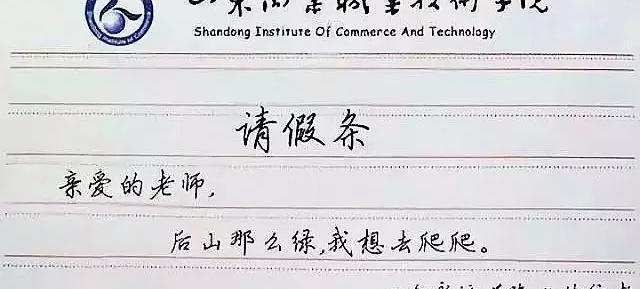 山东商业职业技术学院
Shandong Institute Of Commerce And Technology
请假条
亲爱的老师,
后山那么绿,我想去爬爬。